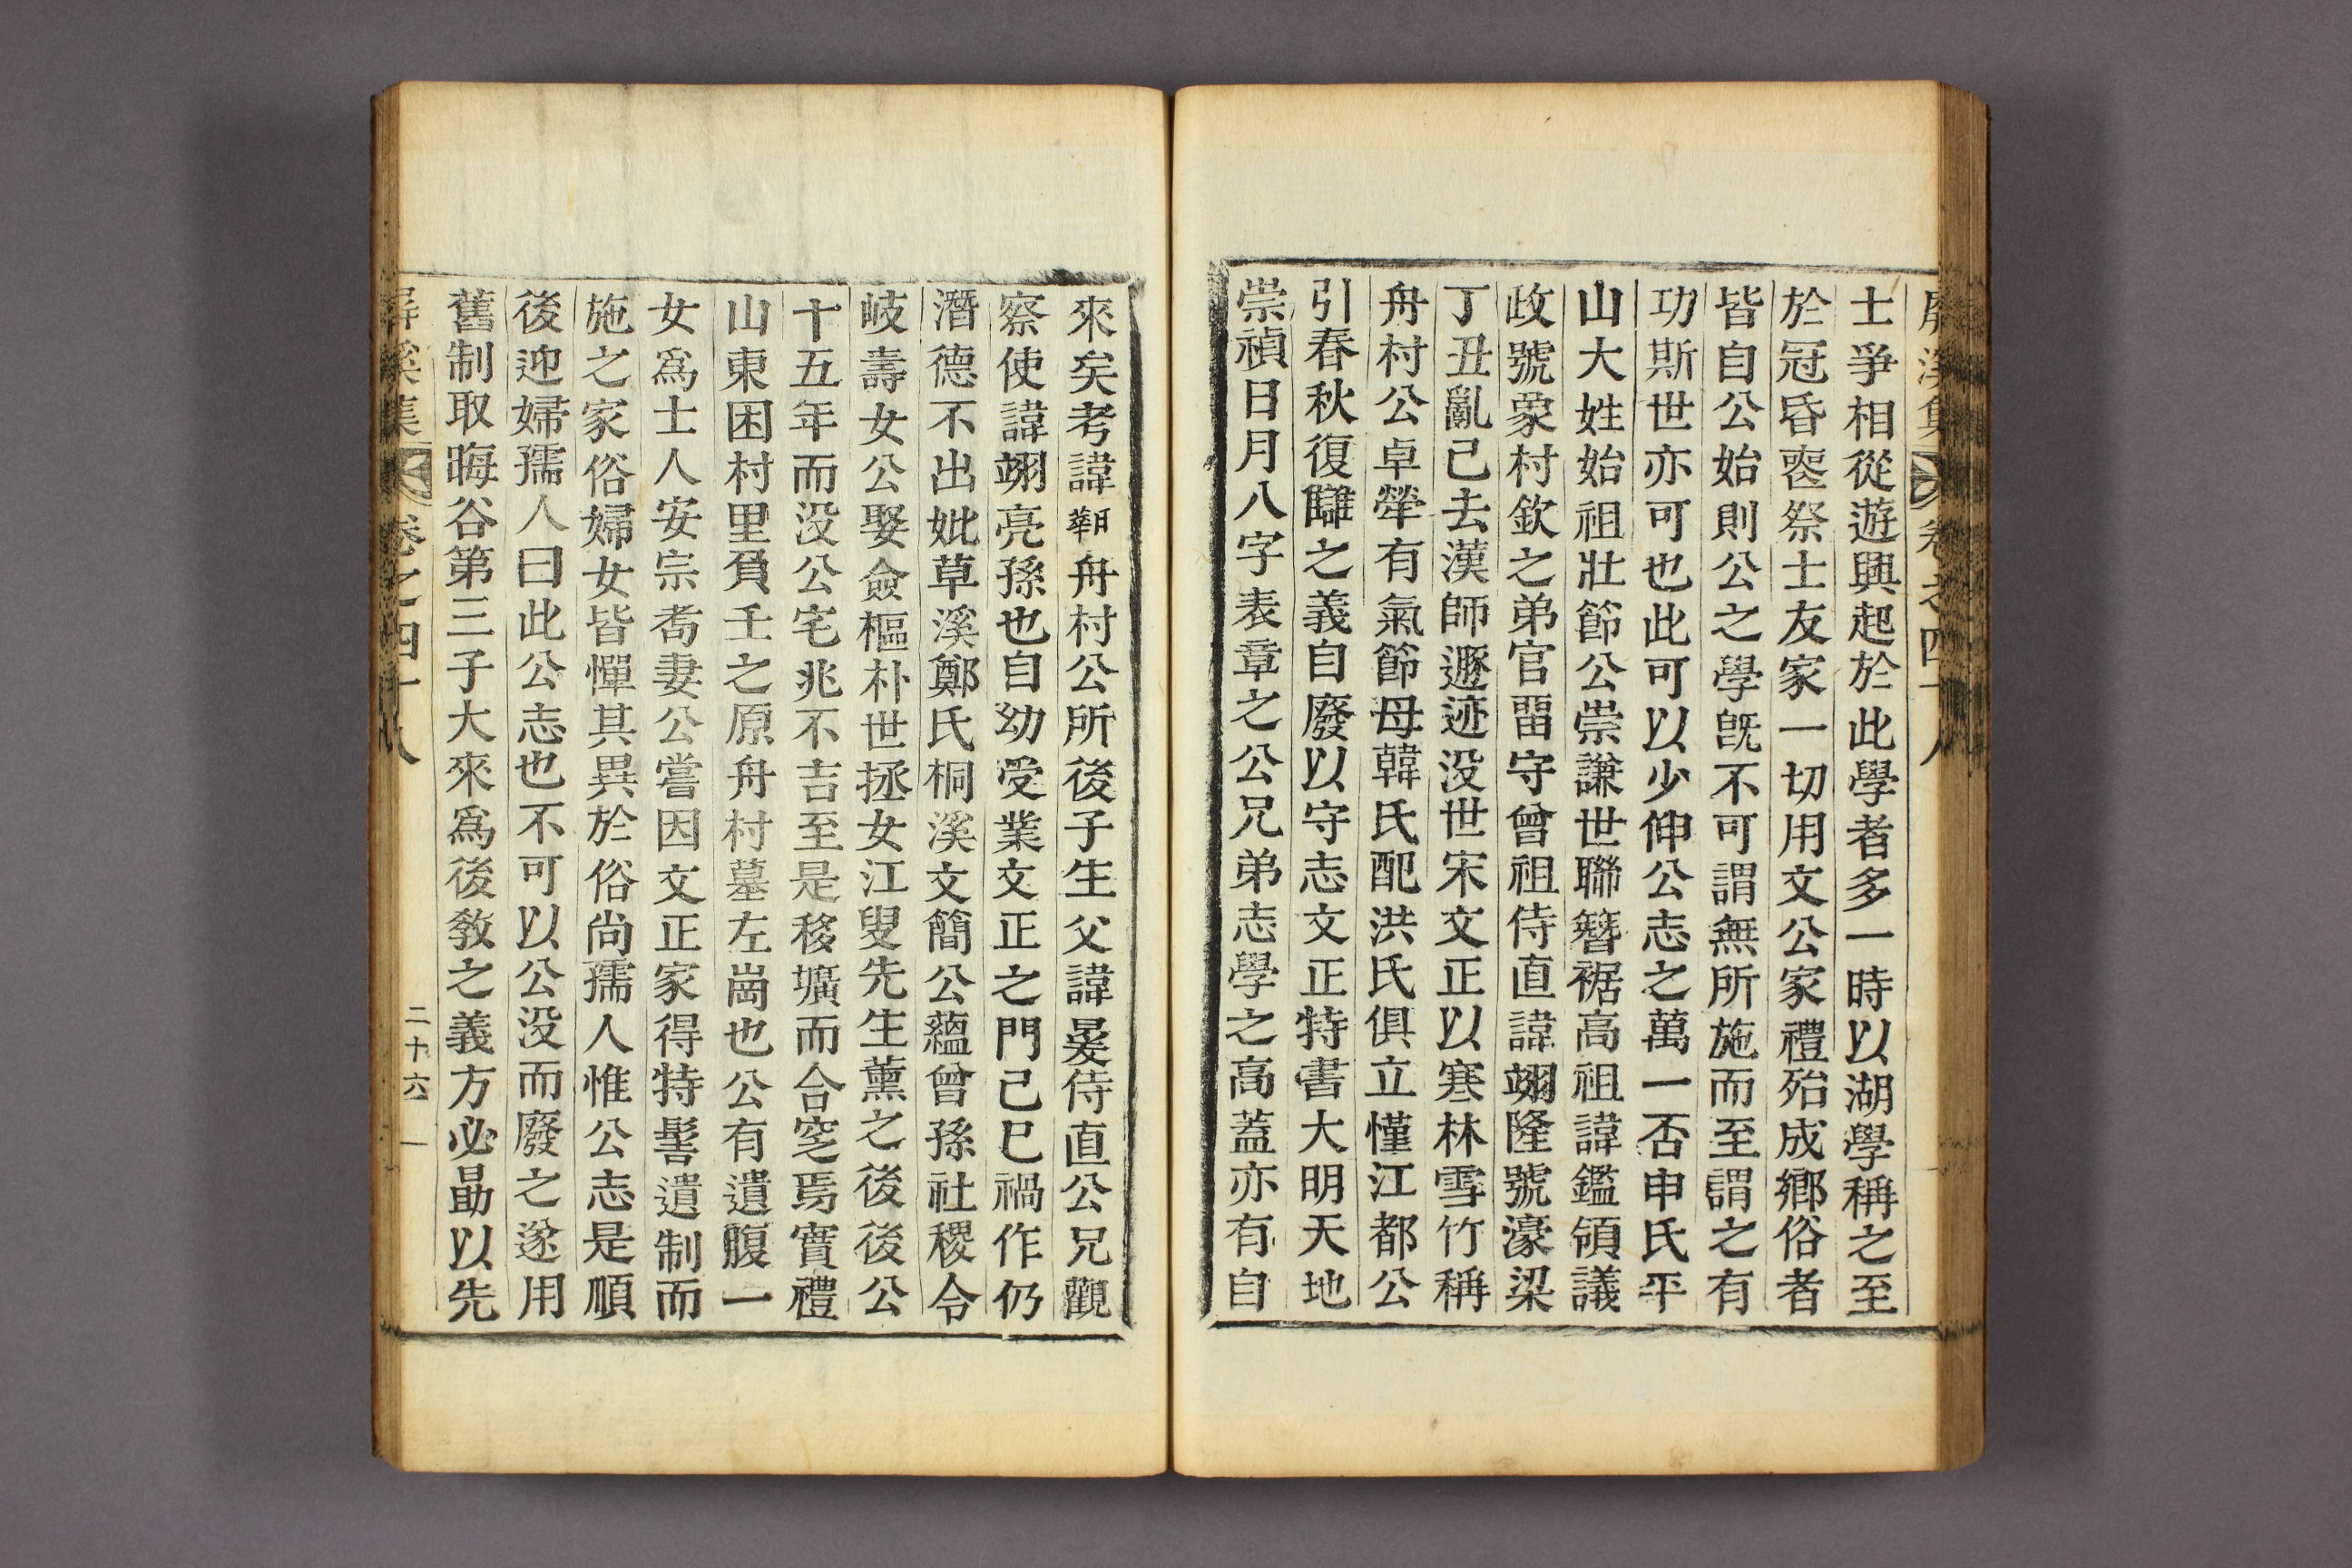 屏溪集 卷之四十八
士爭相從遊興起於此學者多一時以湖學稱之至
於冠昏喪祭士友家一切用文公家禮殆成鄕俗者
皆自公始則公之學旣不可謂無所施而至謂之有
功斯世亦可也此可以少伸公志之萬一否申氏平
山大姓始祖壯節公崇謙世聯簪裾高祖諱鑑領議
政號象村欽之弟官留守曾祖侍直諱翊隆號濠梁
丁丑亂已去漢師遯迹没世宋文正以寒林雪竹稱
舟村公卓犖有氣節母韓氏配洪氏俱立慬江都公
引春秋復讎之義自廢以守志文正特書大明天地
崇禎日月八字表章之公兄弟志學之高蓋亦有自
來矣考諱鞙舟村公所後子生父諱晏侍直公兄觀
察使諱翊亮孫也自幼受業文正之門己巳禍作仍
潛德不出妣草溪鄭氏桐溪文簡公蘊曾孫社稷令
岐壽女公娶僉樞朴世拯女江叟先生薰之後後公
十五年而没公宅兆不吉至是移壙而合窆焉實禮
山東困村里負壬之原舟村墓左崗也公有遺腹一
女爲士人安宗喬妻公嘗因文正家得特髻遺制而
施之家俗婦女皆憚其異於俗尙孺人惟公志是順
後迎婦孺人曰此公志也不可以公没而廢之遂用
舊制取晦谷第三子大來爲後敎之義方必勖以先
屏溪集 卷之四十八 二十六